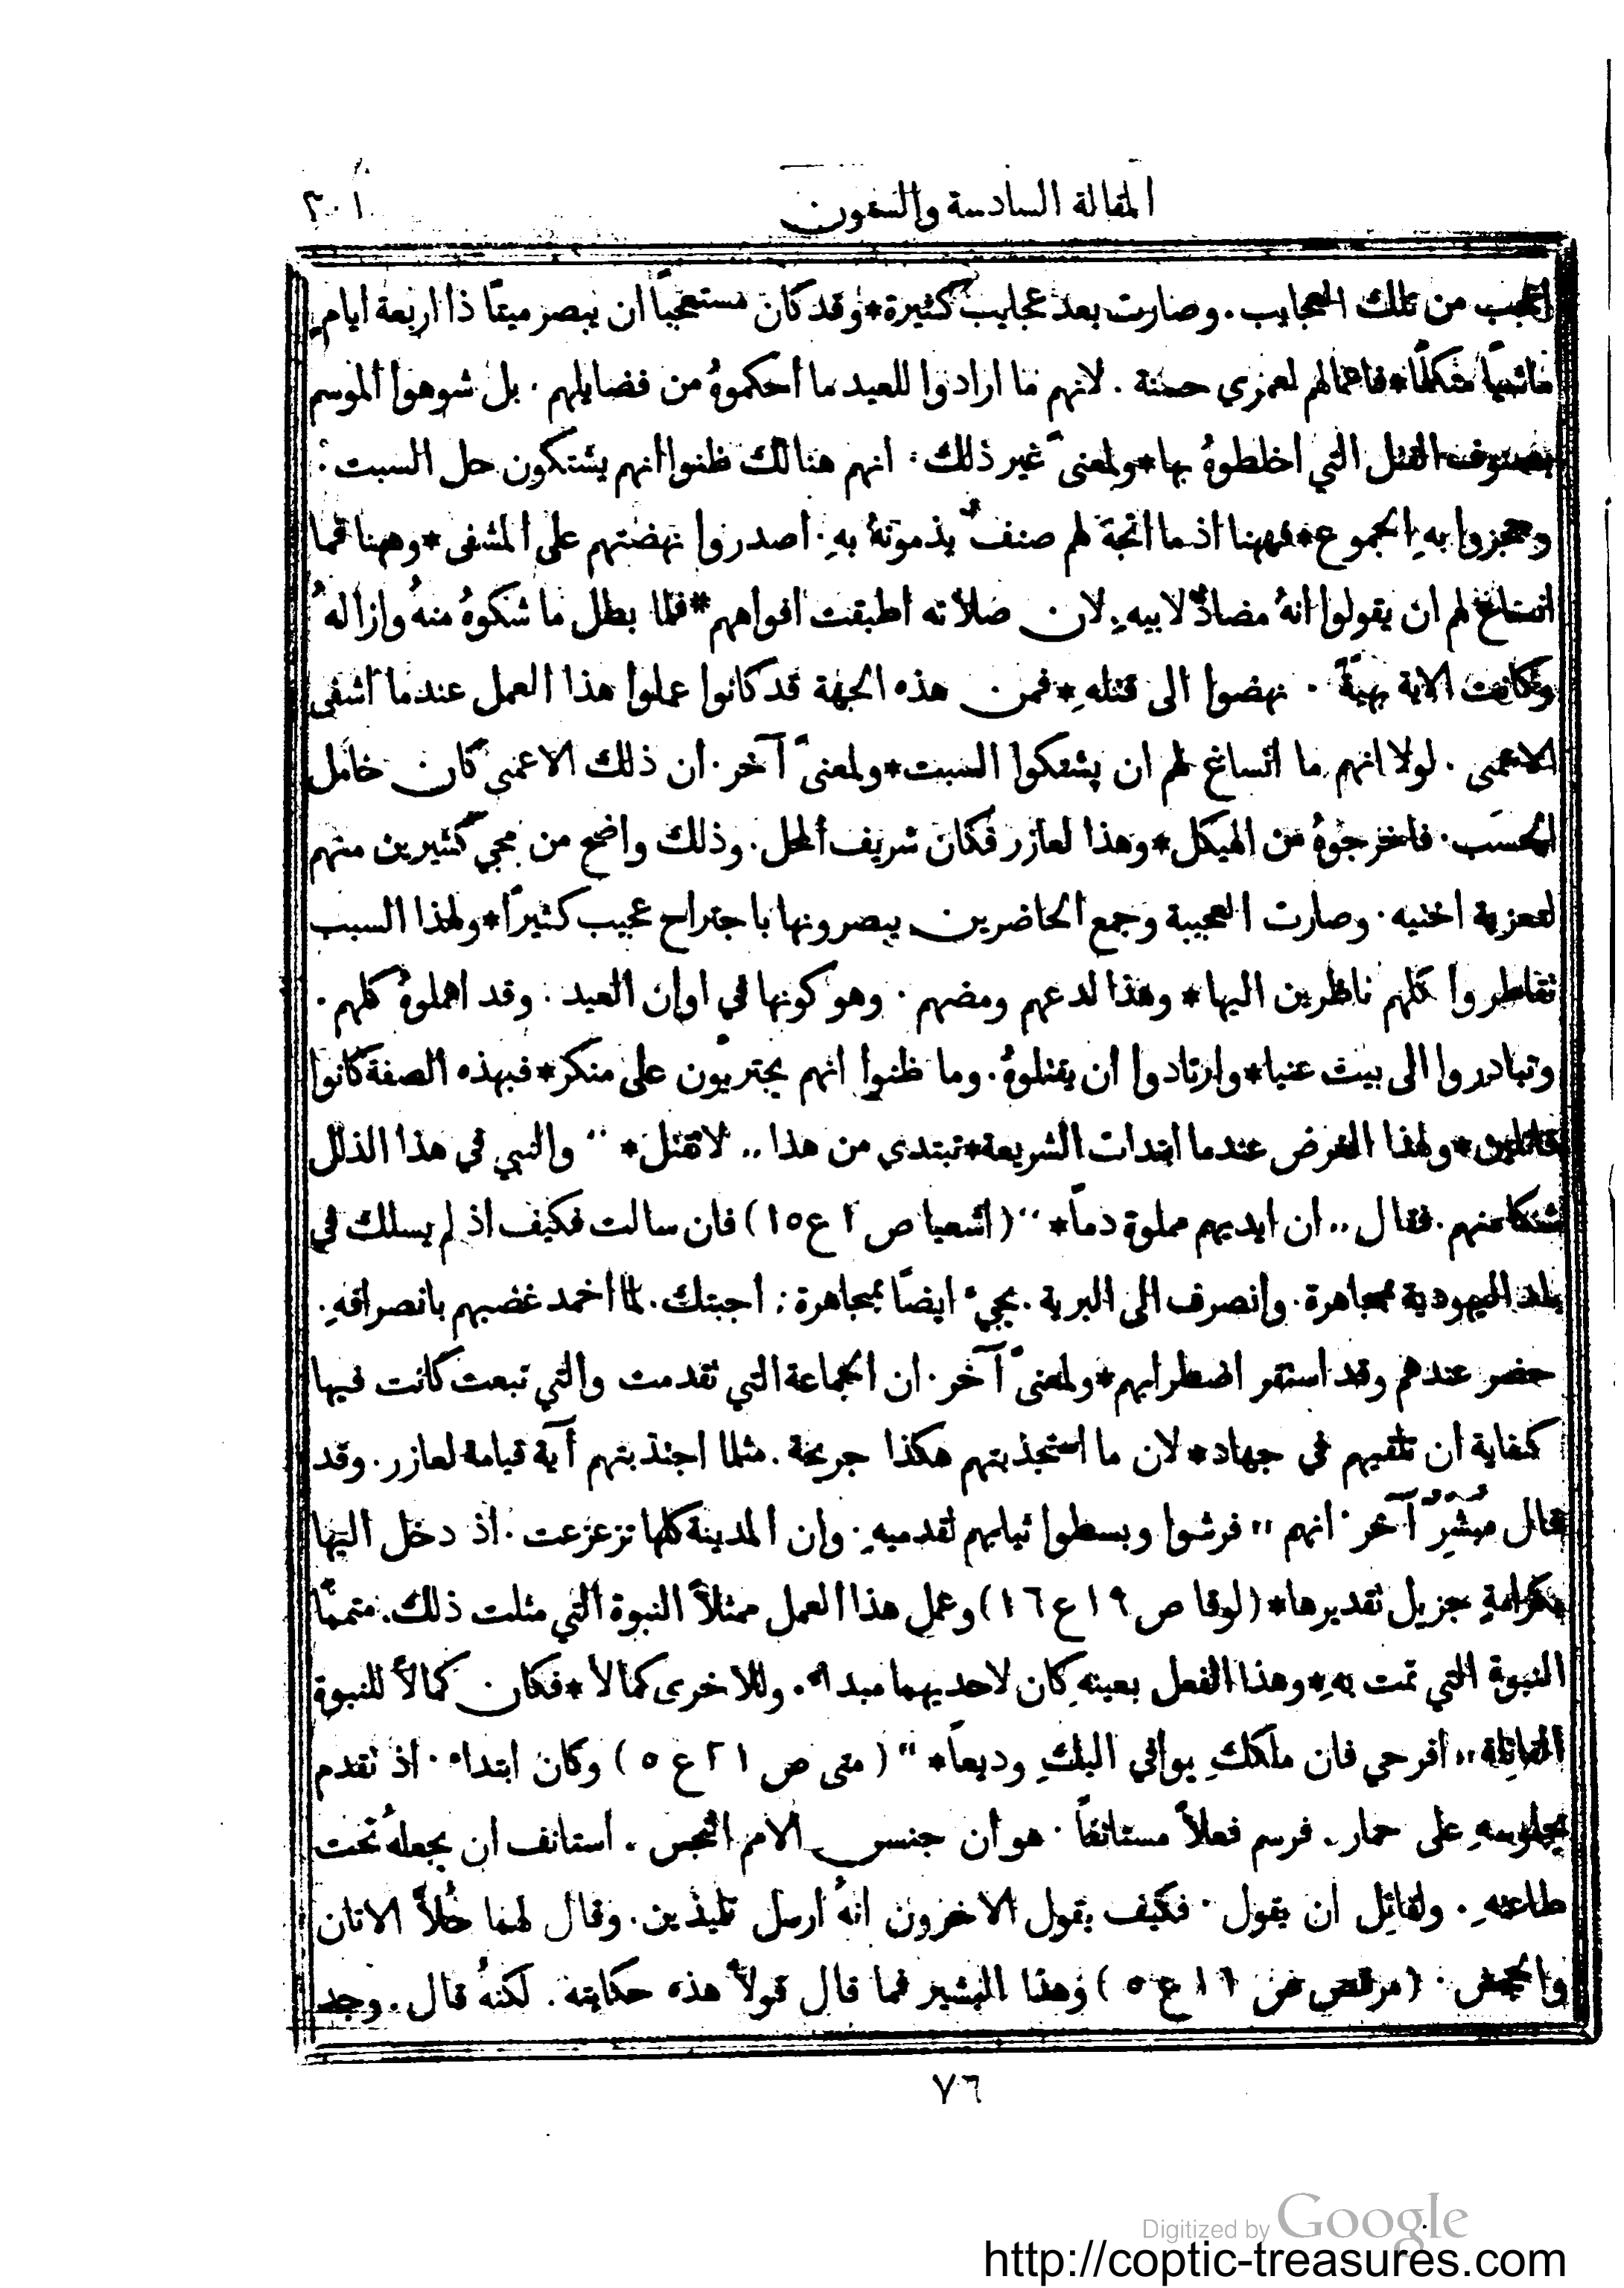 المقالة السادسة والستون
٣٠١
اعجب من تلك العجايب. وصارت بعد عجايب كثيرة*وقد كان مستعجبًا ان يبصر ميتًا ذا اربعة ايام
ماشيًا متكلمًا*فاعمالهم لعمري حسنة . لانهم ما ارادوا للعيد ما احكموهُ من فضايلهم . بل شوهوا الموسم
بصنوف القتل التي اخلطوهُ بها*ولمعنىً غير ذلك: انهم هنالك ظنوا انهم يشتكون حل السبت:
وحجزوا بهِ الجموع*فههنا اذ ما اتجه لهم صنفٌ يذمونهُ بهِ. اصدروا نهضتهم على المشفى*وههنا فما
انساغ لهم ان يقولوا انهُ مضادٌ لابيهِ. لان صلاته اطبقت افواههم*فلما بطل ما شكوهُ منهُ وازالهُ
وكانت الاية بهيَّةً . نهضوا الى قتلهِ*فمن هذه الجهة قد كانوا عملوا هذا العمل عندما اشفى
الاعمى . لولا انهم ما انساغ لهم ان يشتكوا السبت*ولمعنىً آخر. ان ذلك الاعمى كان خامل
الحسَب. فاخرجوهُ من الهيكل*وهذا لعازر فكان شريف المحل. وذلك واضح من مجي كثيرين منهم
لتعزية اختيه. وصارت العجيبة وجمع الحاضرين يبصرونها باجتراح عجيب كثيرًا*ولهذا السبب
تقاطروا كلهم ناظرين اليها* وهذا لدعهم ومضهم . وهو كونها في اوان العيد . وقد اهملوهُ كلهم .
وتبادروا الى بيت عنيا*وارتادوا ان يقتلوهُ. وما ظنوا انهم يجتريون على منكر*فبهذه الصفة كانوا
قاتلين*ولهذا الغرض عندما ابتدات الشريعة*تبتدي من هذا ,, لا تقتل* " والنبي في هذا الذلل
شكا منهم. فقال ,, ان ايديهم مملوة دمًا* " (اشعيا ص ١ ع ١٥) فان سالت فكيف اذ لم يسلك في
بلد اليهودية مجاهرة. وانصرف الى البرية . يجيء ايضًا بمجاهرة: اجبتك. لما اخمد غضبهم بانصرافهِ.
حضر عندهم وقد استقر اضطرابهم*ولمعنىً آخر. ان الجماعة التي تقدمت والتي تبعت كانت فيها
كفاية ان تلقيهم في جهاد*لان ما استجذبتهم هكذا جريحة . مثلما اجتذبتهم آية قيامة لعازر. وقد
قال مبشرٌ آخر. انهم ,, فرشوا وبسطوا ثيابهم لقدميهِ. وان المدينة كلها تزعزعت . اذ دخل اليها
بكرامةٍ جزيل تقديرها*(لوقا ص ١٩ ع ١٦) وعمل هذا العمل ممثلاً النبوة التي مثلت ذلك. متممًا
النبوة التي تمت بهِ*وهذا الفعل بعينهِ كان لاحديهما مبداء. وللاخرى كمالا*فكان كمالاً للنبوة
القائلة ,, افرحي فان ملككِ يوافي اليكِ وديعًا* " ( متى ص ٢١ ع ٥ ) وكان ابتداء. اذ تقدم
بجلوسهِ على حمار. فرسم فعلاً مستانفًا . هو ان جنس الامم النجس . استانف ان يجعلهُ تحت
طاعتهِ. ولقائل ان يقول . فكيف يقول الاخرون انهُ ارسل تلميذين. وقال لهما حُلاَّ الاتان
والجحش . (مرقص ص ١١ ع ٥) وهذا البشير فما قال قولاً هذه حكايته. لكنهُ قال. وجد
٧٦
Digitized by Google
http://coptic-treasures.com